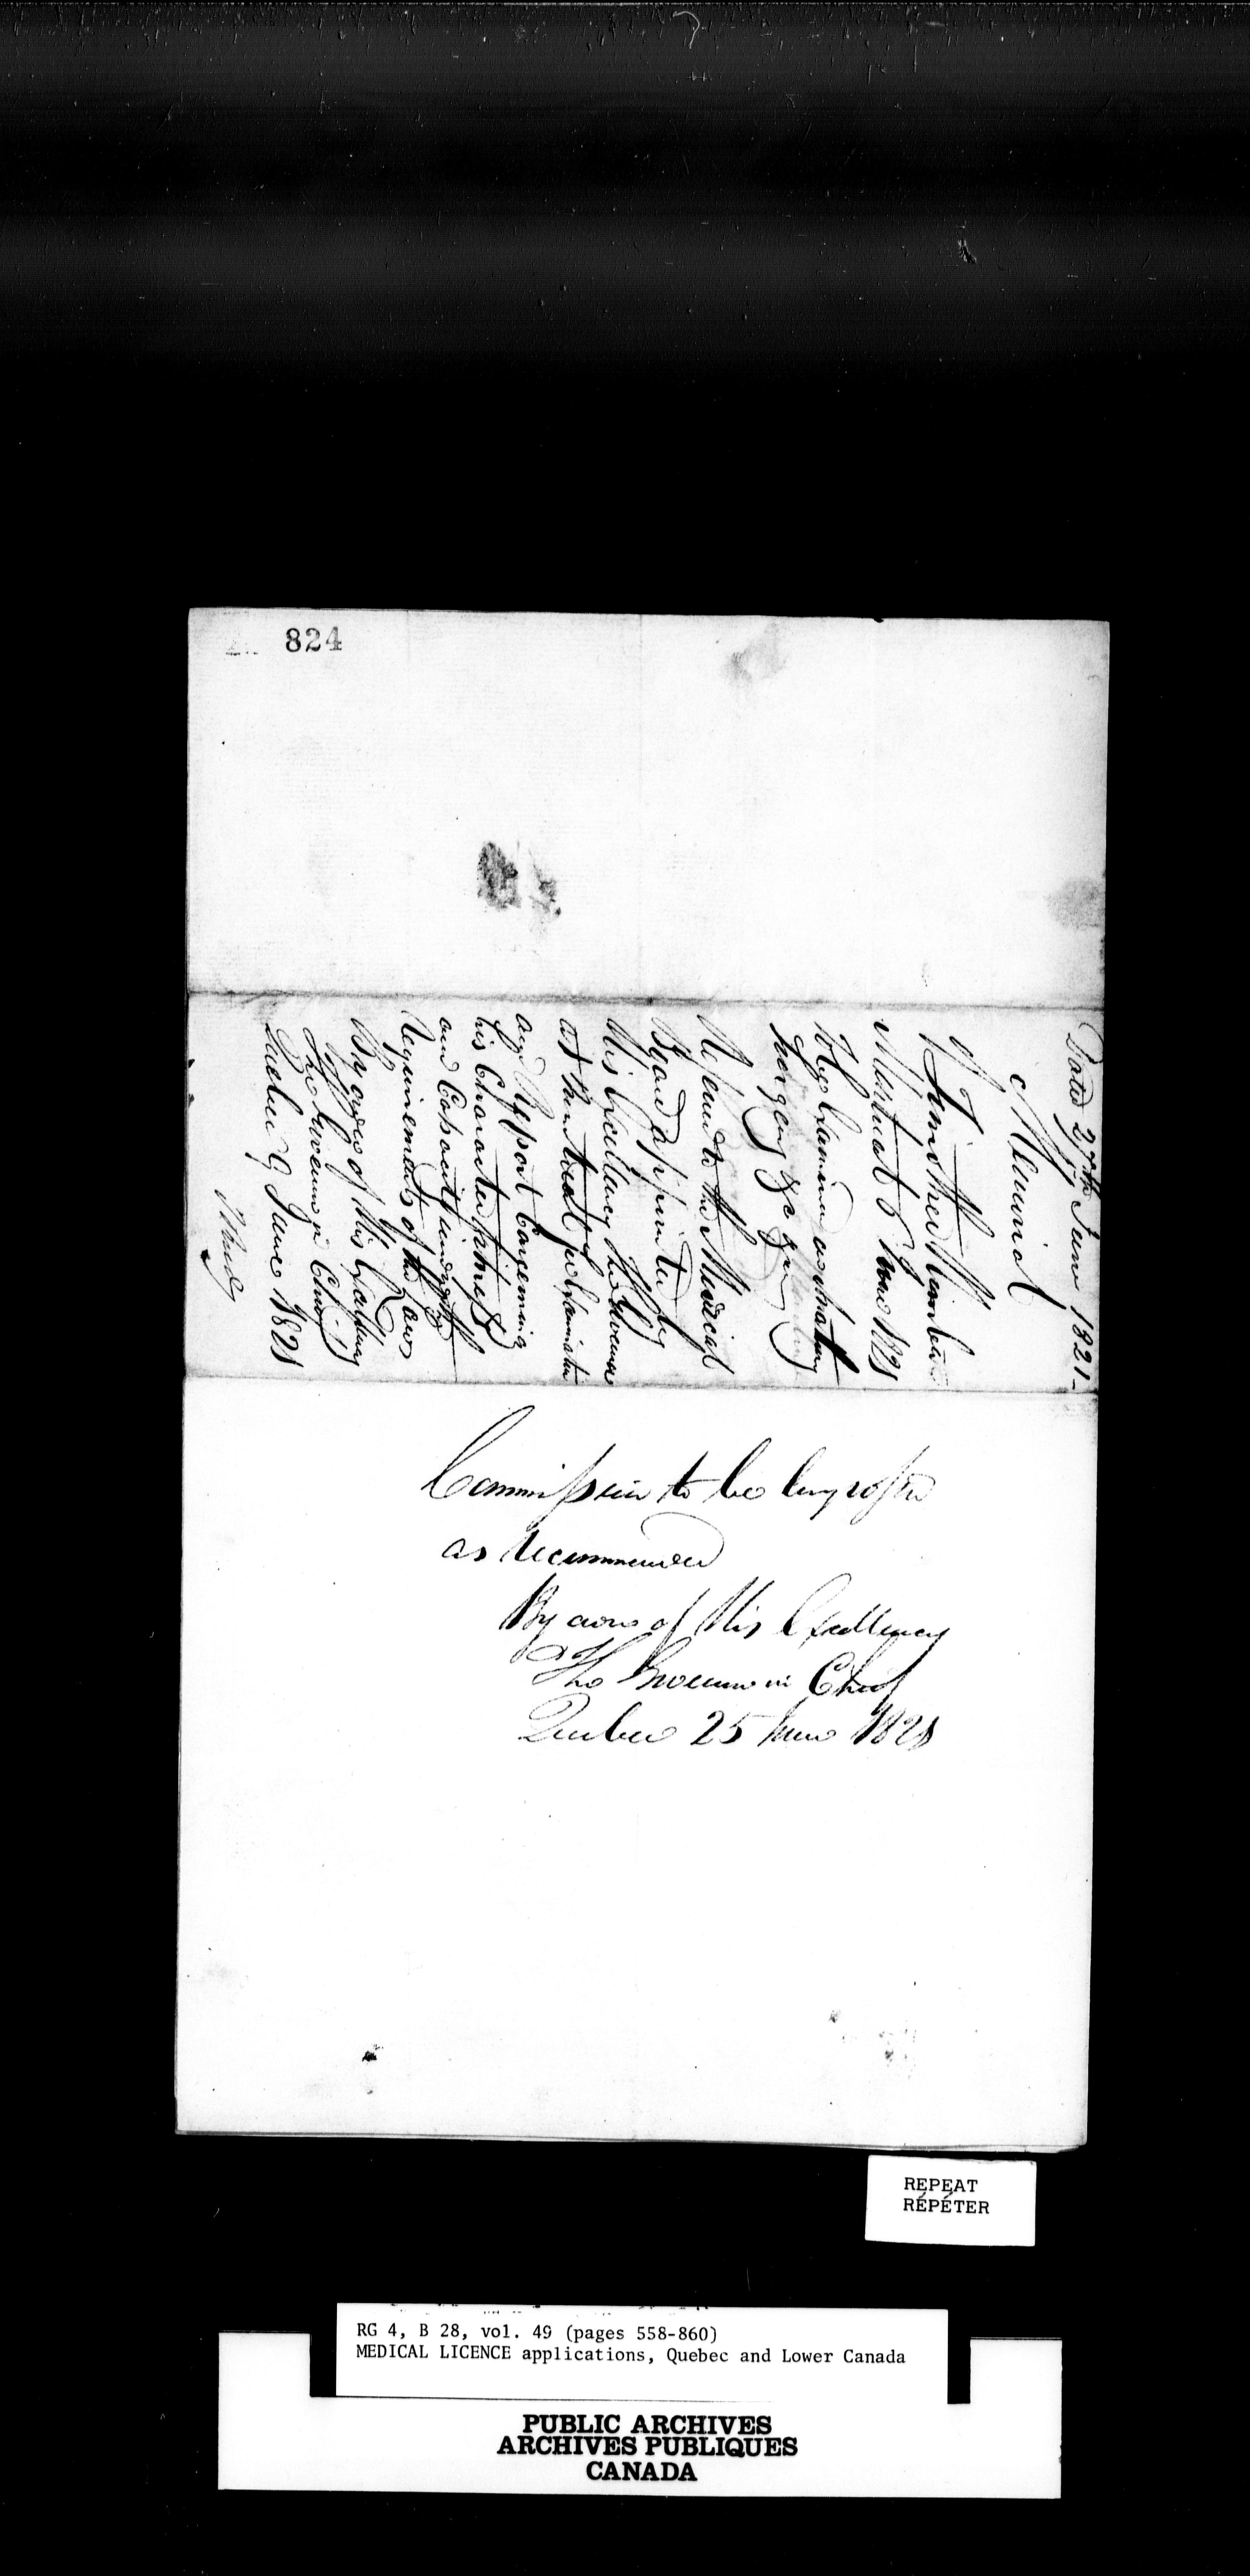 824
Dated 27th June 1821-
Memorial
of Timothee
Montreal 6 June 1821
To be Examined as
Surgeon &c &c
Referred to the Medical
Board appointed by
His Excellency the Governor
as them
and Report Concerning
his Character fitness
and Capacity under the
Requirements of the Law
By order of His Excellency
The Governor in Chief
Quebec 9 June 1821
Commission to be Engrossed
as recommended
By order of His Excellency
The Governor in Chief
Quebec 25 June 1821
REPEAT
RÉPÉTER
RG 4, B 28, vol. 49 (pages 558-860)
MEDICAL LICENCE applications, Quebec and Lower Canada
PUBLIC ARCHIVES
ARCHIVES PUBLIQUES
CANADA